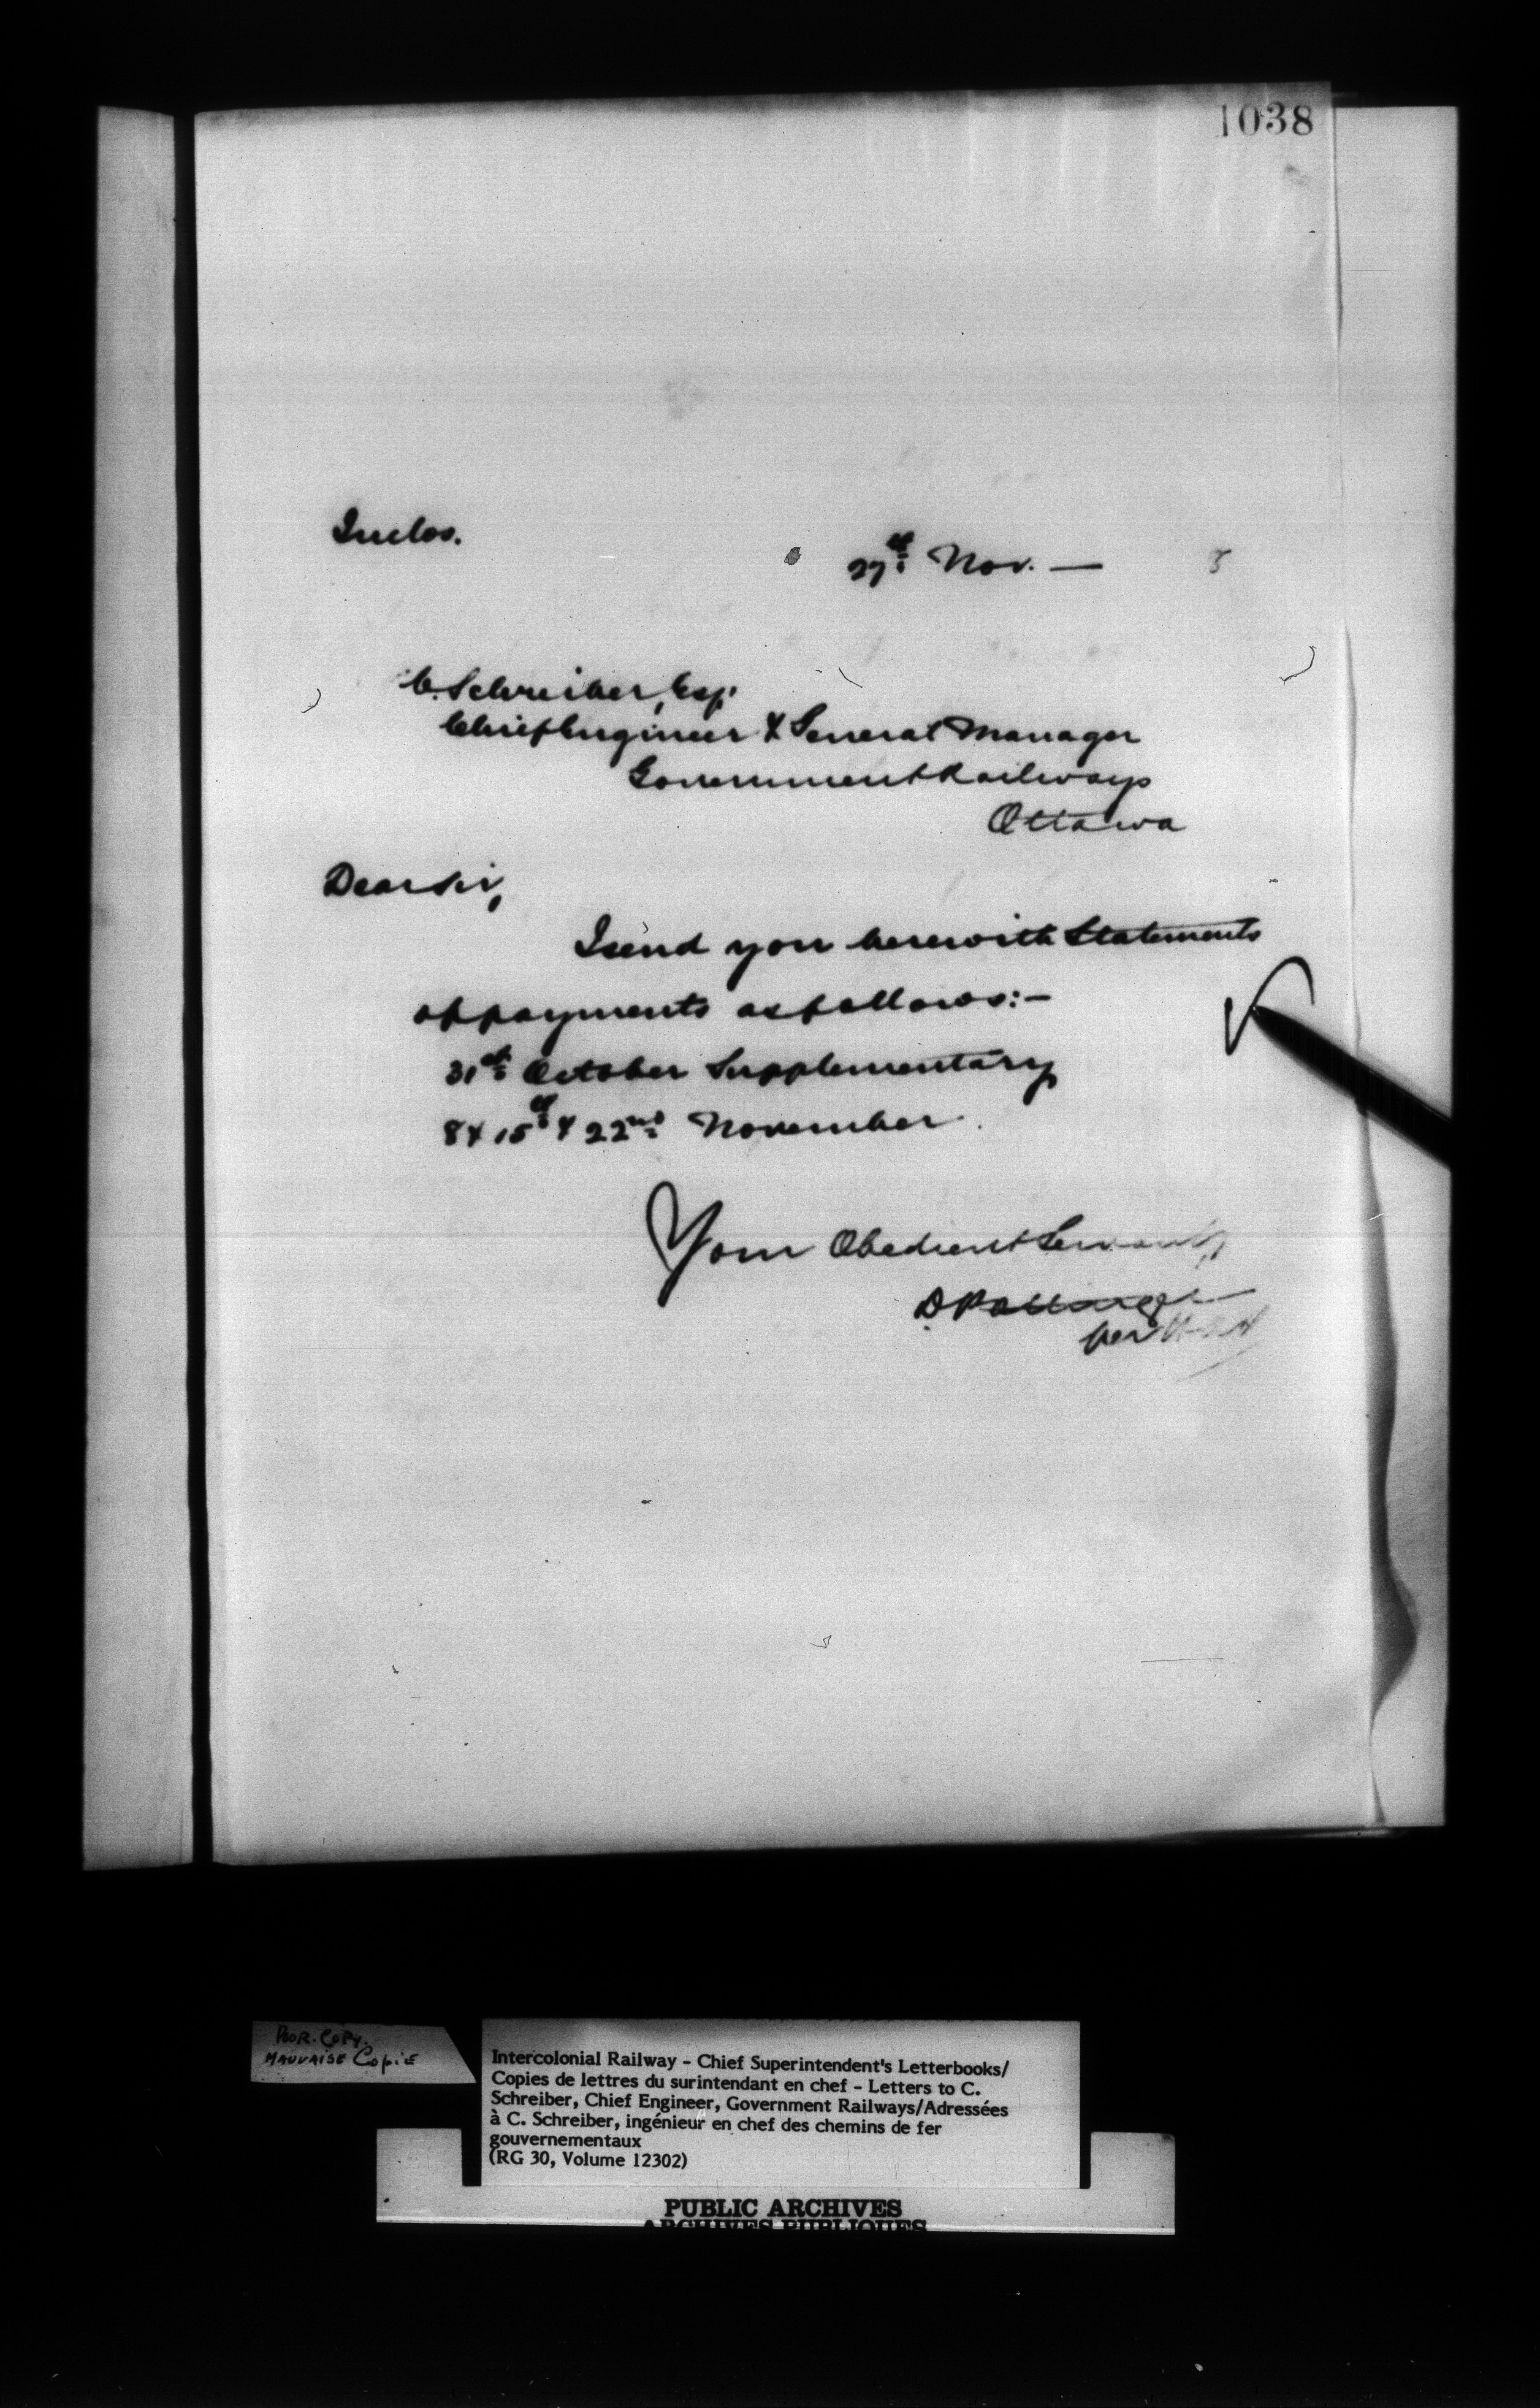 1038
Inclos.
27th Nov. — 3
C. Schreiber, Esq.
Chief Engineer & General Manager
Government Railways
Ottawa
Dear Sir,
I send you herewith Statements
of payments as follows:—
31st October Supplementary
8 & 15th & 22nd November.
Your Obedient Servant,
D Pottinger
per
POOR. COPY.
MAUVAISE COPIE
Intercolonial Railway – Chief Superintendent's Letterbooks/
Copies de lettres du surintendant en chef – Letters to C.
Schreiber, Chief Engineer, Government Railways/Adressées
à C. Schreiber, ingénieur en chef des chemins de fer
gouvernementaux
(RG 30, Volume 12302)
PUBLIC ARCHIVES
ARCHIVES PUBLIQUES